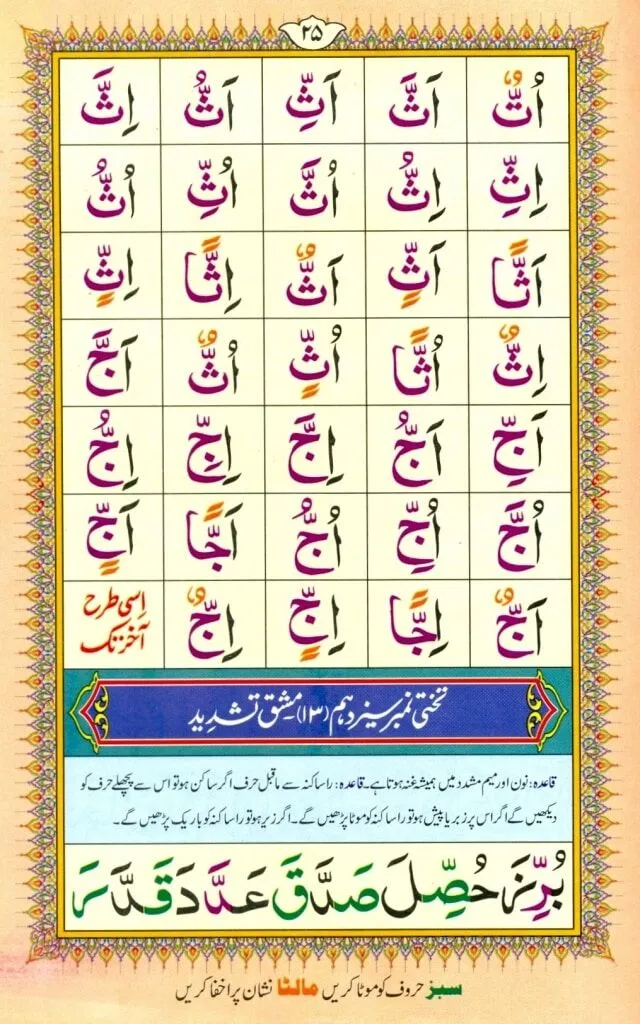 ۲۵
اُتٌّ اَثَّ اَثِّ اَثُّ اِثَّ
اِثِّ اِثُّ اُثَّ اُثِّ اُثُّ
اَثًّا اَثٍّ اَثٌّ اِثًّا اِثٍّ
اِثٌّ اُثًّا اُثٍّ اُثٌّ اَجَّ
اَجِّ اَجُّ اِجَّ اِجِّ اِجُّ
اُجَّ اُجِّ اُجُّ اَجًّا اَجٍّ
اَجٌّ اِجًّا اِجٍّ اِجٌّ اِسی طرح آخر تک
تختی نمبر سیزدہم (۱۳)۔ مشق تشدید
قاعدہ: نون اور میم مشدد میں ہمیشہ غنہ ہوتا ہے۔ قاعدہ: را ساکنہ سے ماقبل حرف اگر ساکن ہو تو اس سے پچھلے حرف کو
دیکھیں گے اگر اس پر زبر یا پیش ہو تو را ساکنہ کو موٹا پڑھیں گے۔ اگر زیر ہو تو را ساکنہ کو باریک پڑھیں گے۔
بُرِّزَ حُصِّلَ صَدَّقَ عَدَّدَ قَدَّرَ
سبز حروف کو موٹا کریں مالٹا نشان پر اخفا کریں